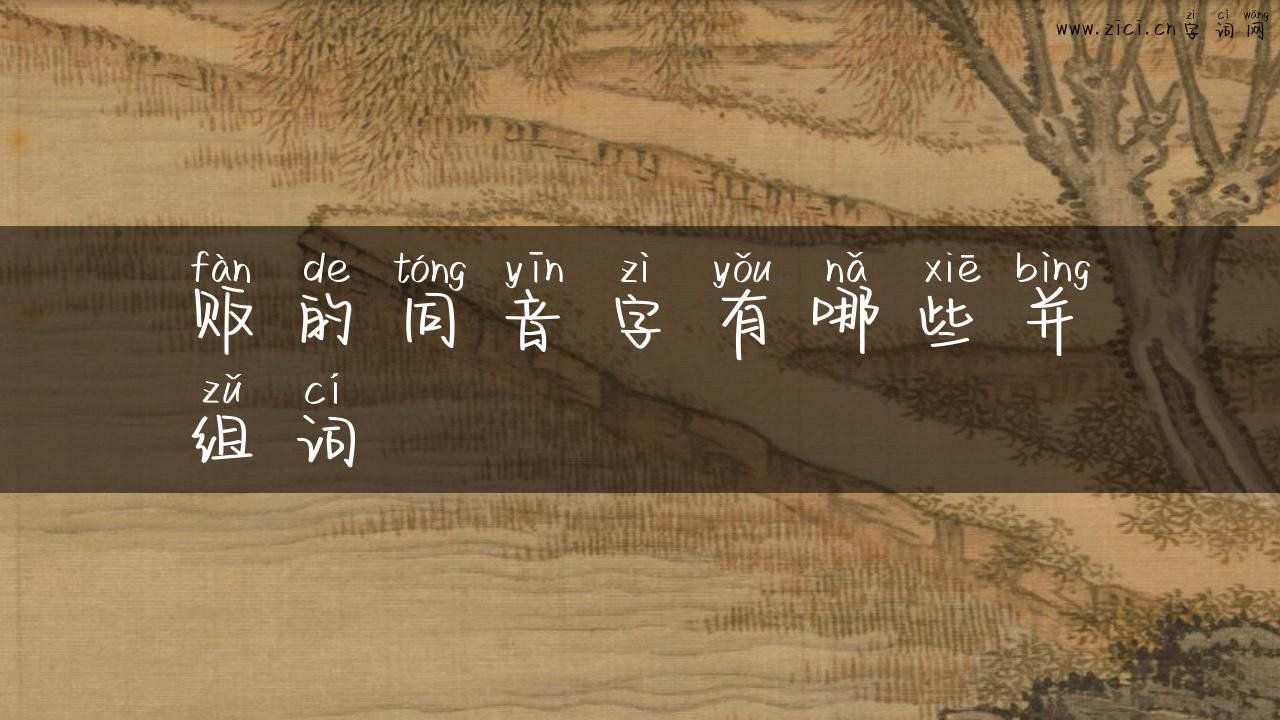 zì cí wǎng
www.zici.cn字词网
fàn de tóng yīn zì yǒu nǎ xiē bìng
贩的同音字有哪些并
zǔ cí
组词